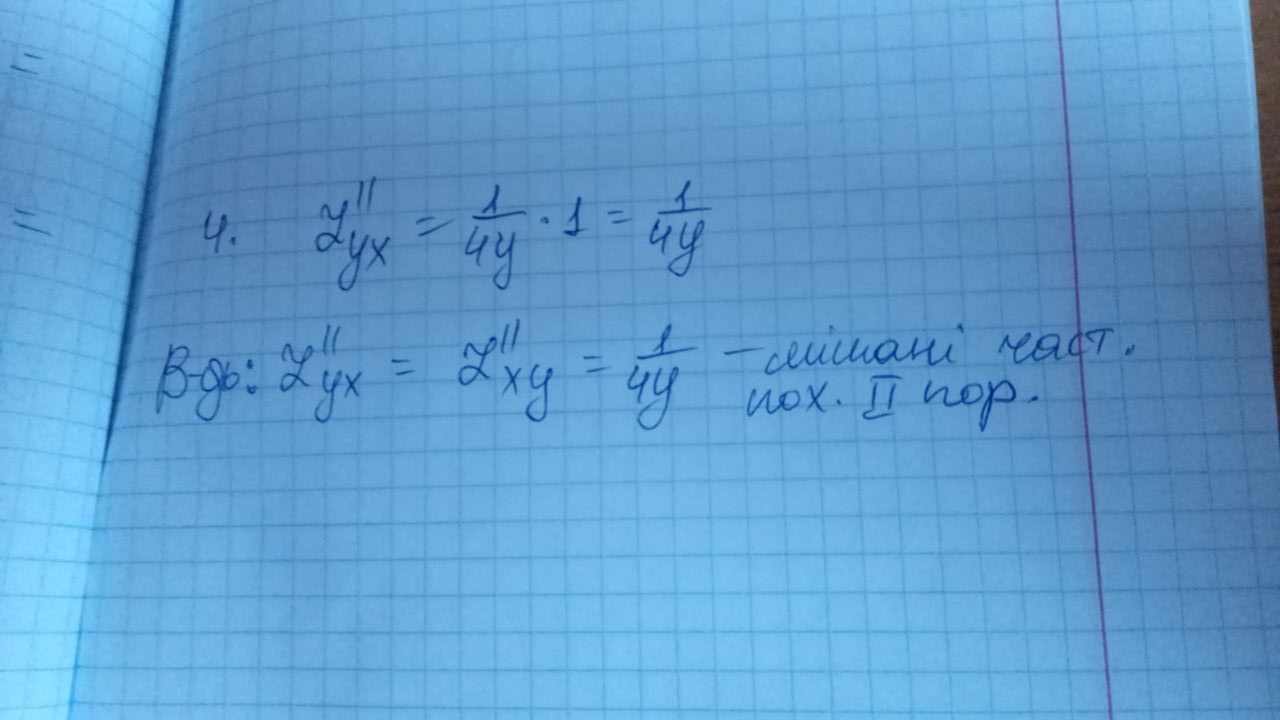 =
=
4. Z''yx = 1/4y · 1 = 1/4y
В-дь: Z''yx = Z''xy = 1/4y – мішані част.
пох. II пор.